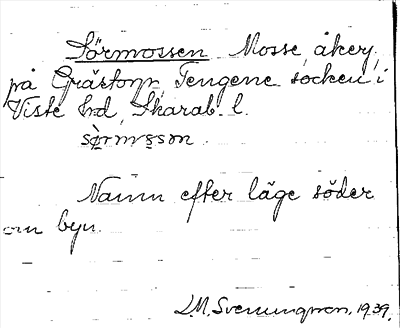 Sörmossen Mosse, åker,
på Gråstorp, Tengene socken i
Viste hd, Skarab. l.
Namn efter läge söder
om byn.
L.M. Svenungsson, 1939.